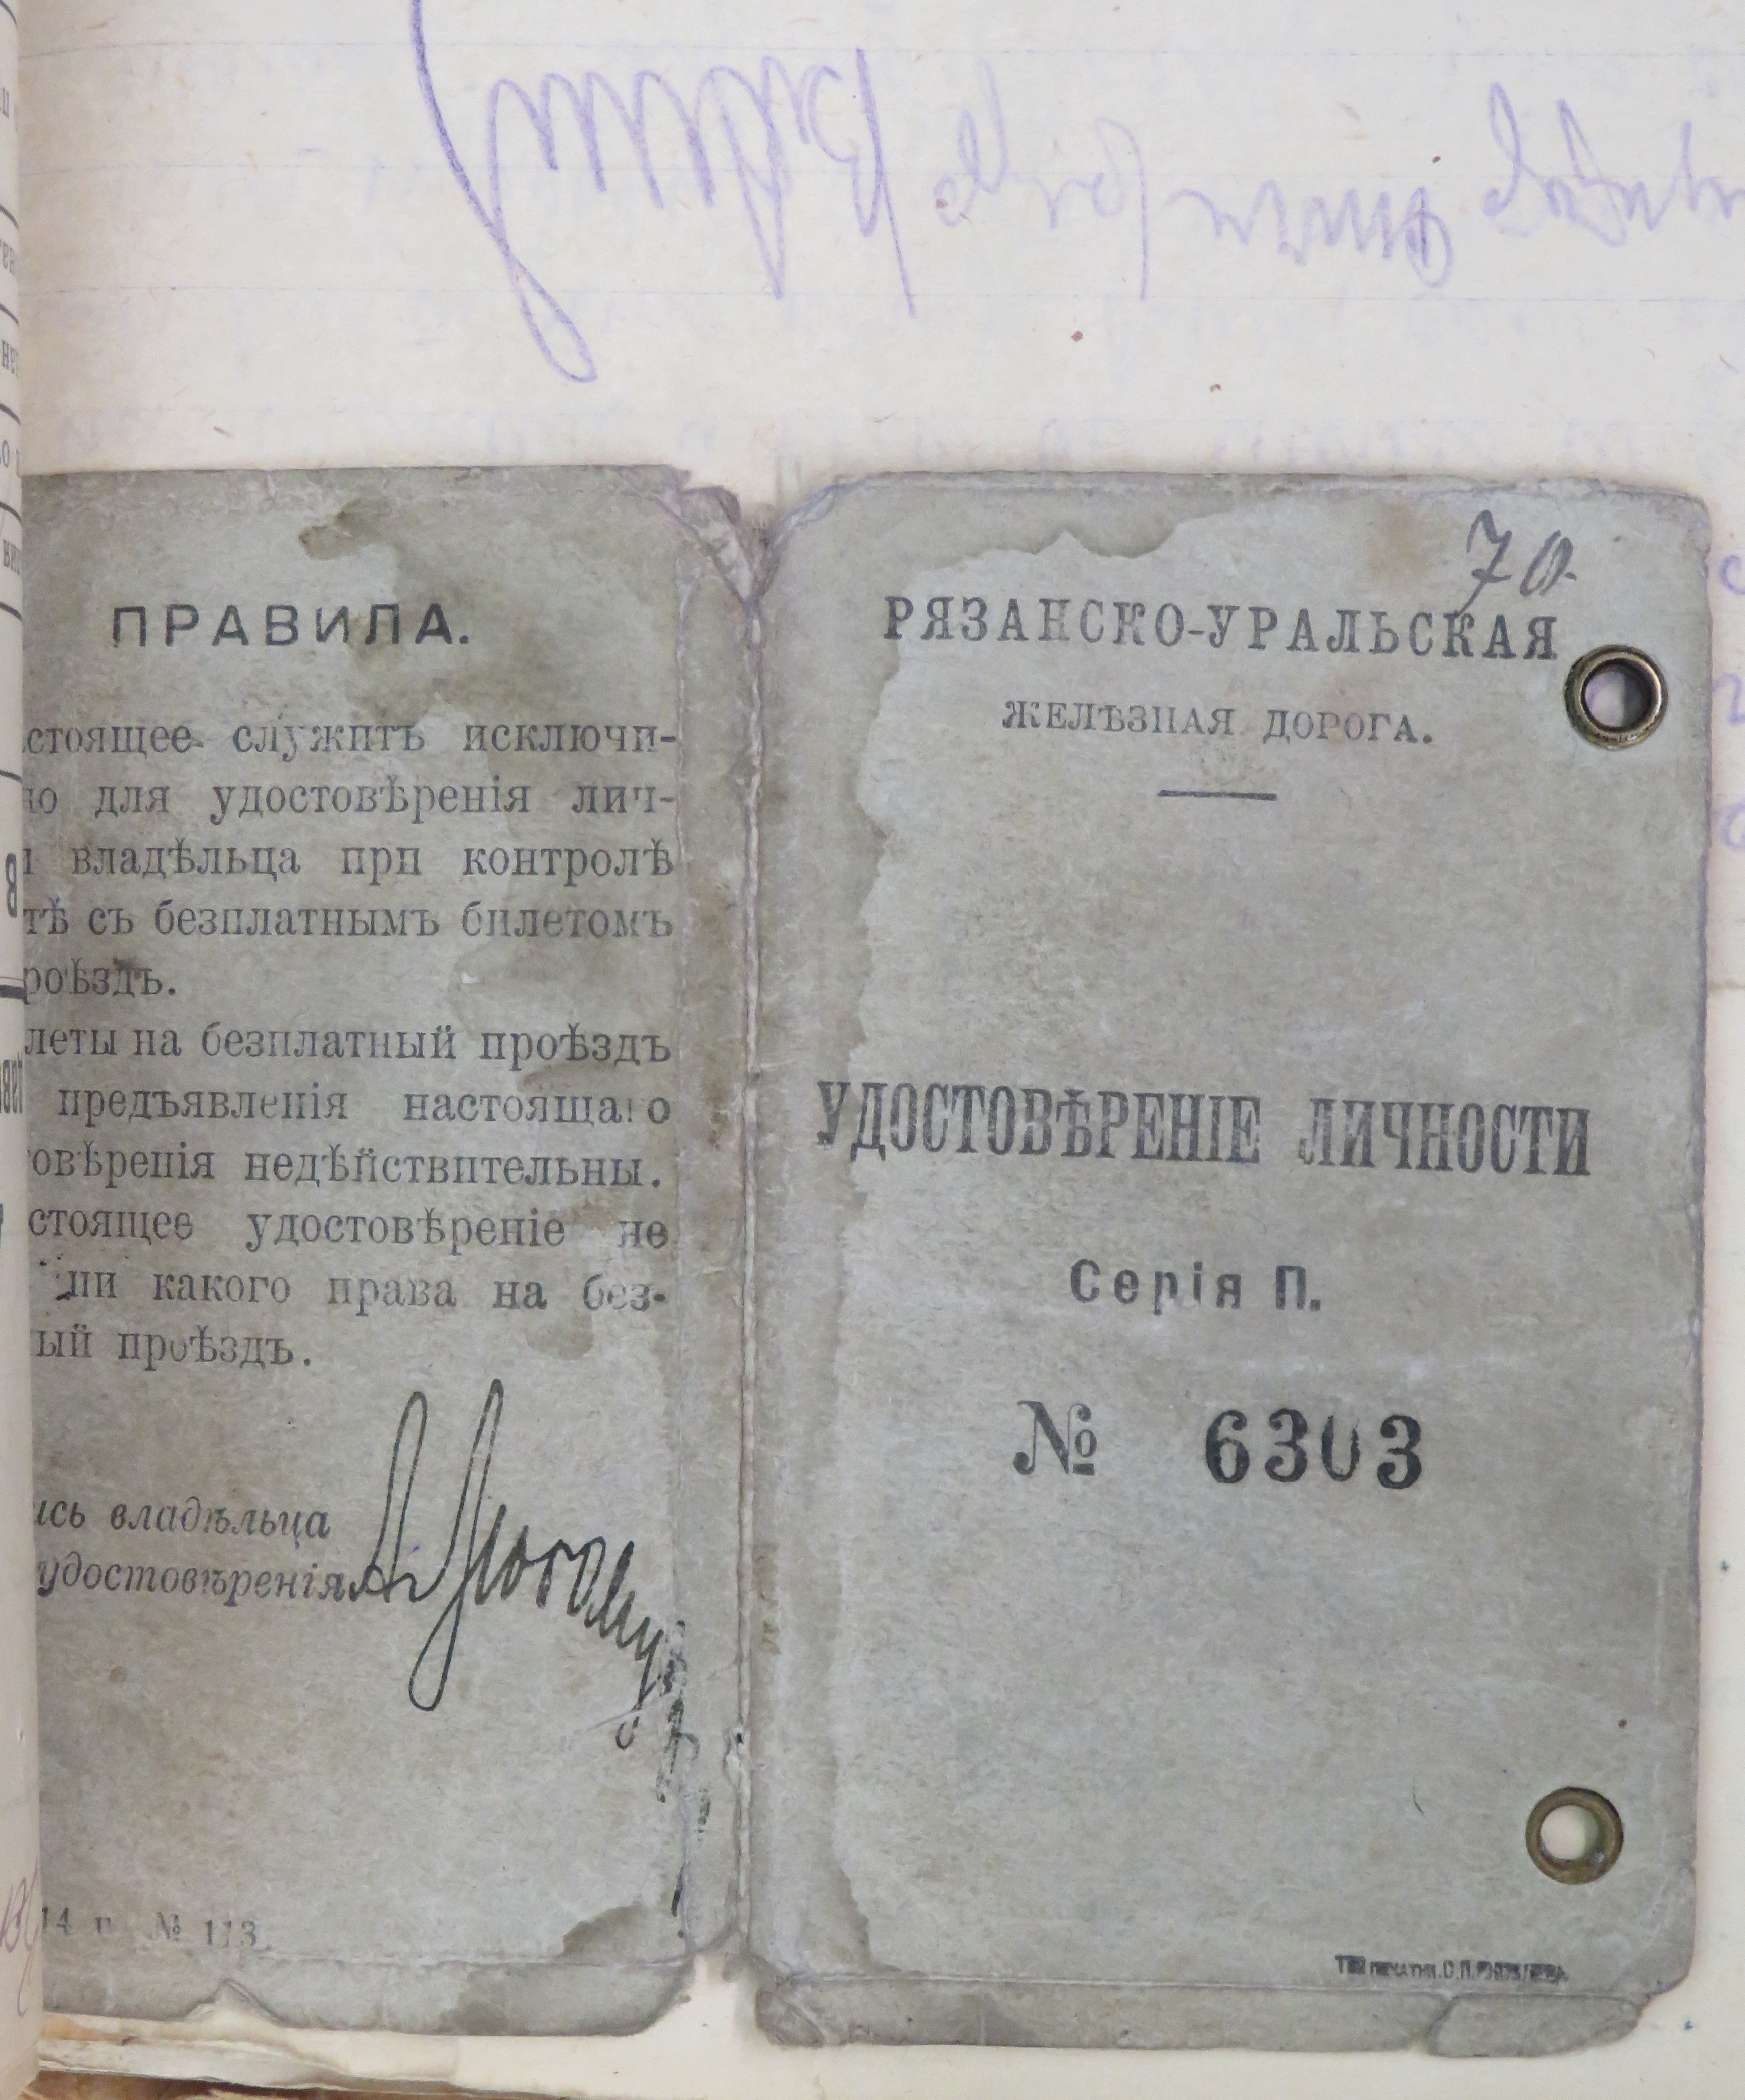 ПРАВИЛА.
стоящее служитъ исключи-
но для удостовѣренія лич-
и владѣльца при контролѣ
тѣ съ безплатнымъ билетомъ
роѣздъ.
леты на безплатный проѣздъ
предъявленія настоящаго
овѣренія недѣйствительны.
стоящее удостовѣреніе не
ни какого права на без-
ый проѣздъ.
ись владѣльца
удостовѣренія
14 г. № 113
70.
РЯЗАНСКО-УРАЛЬСКАЯ
ЖЕЛѢЗНАЯ ДОРОГА.
УДОСТОВѢРЕНІЕ ЛИЧНОСТИ
Серія П.
№ 6303